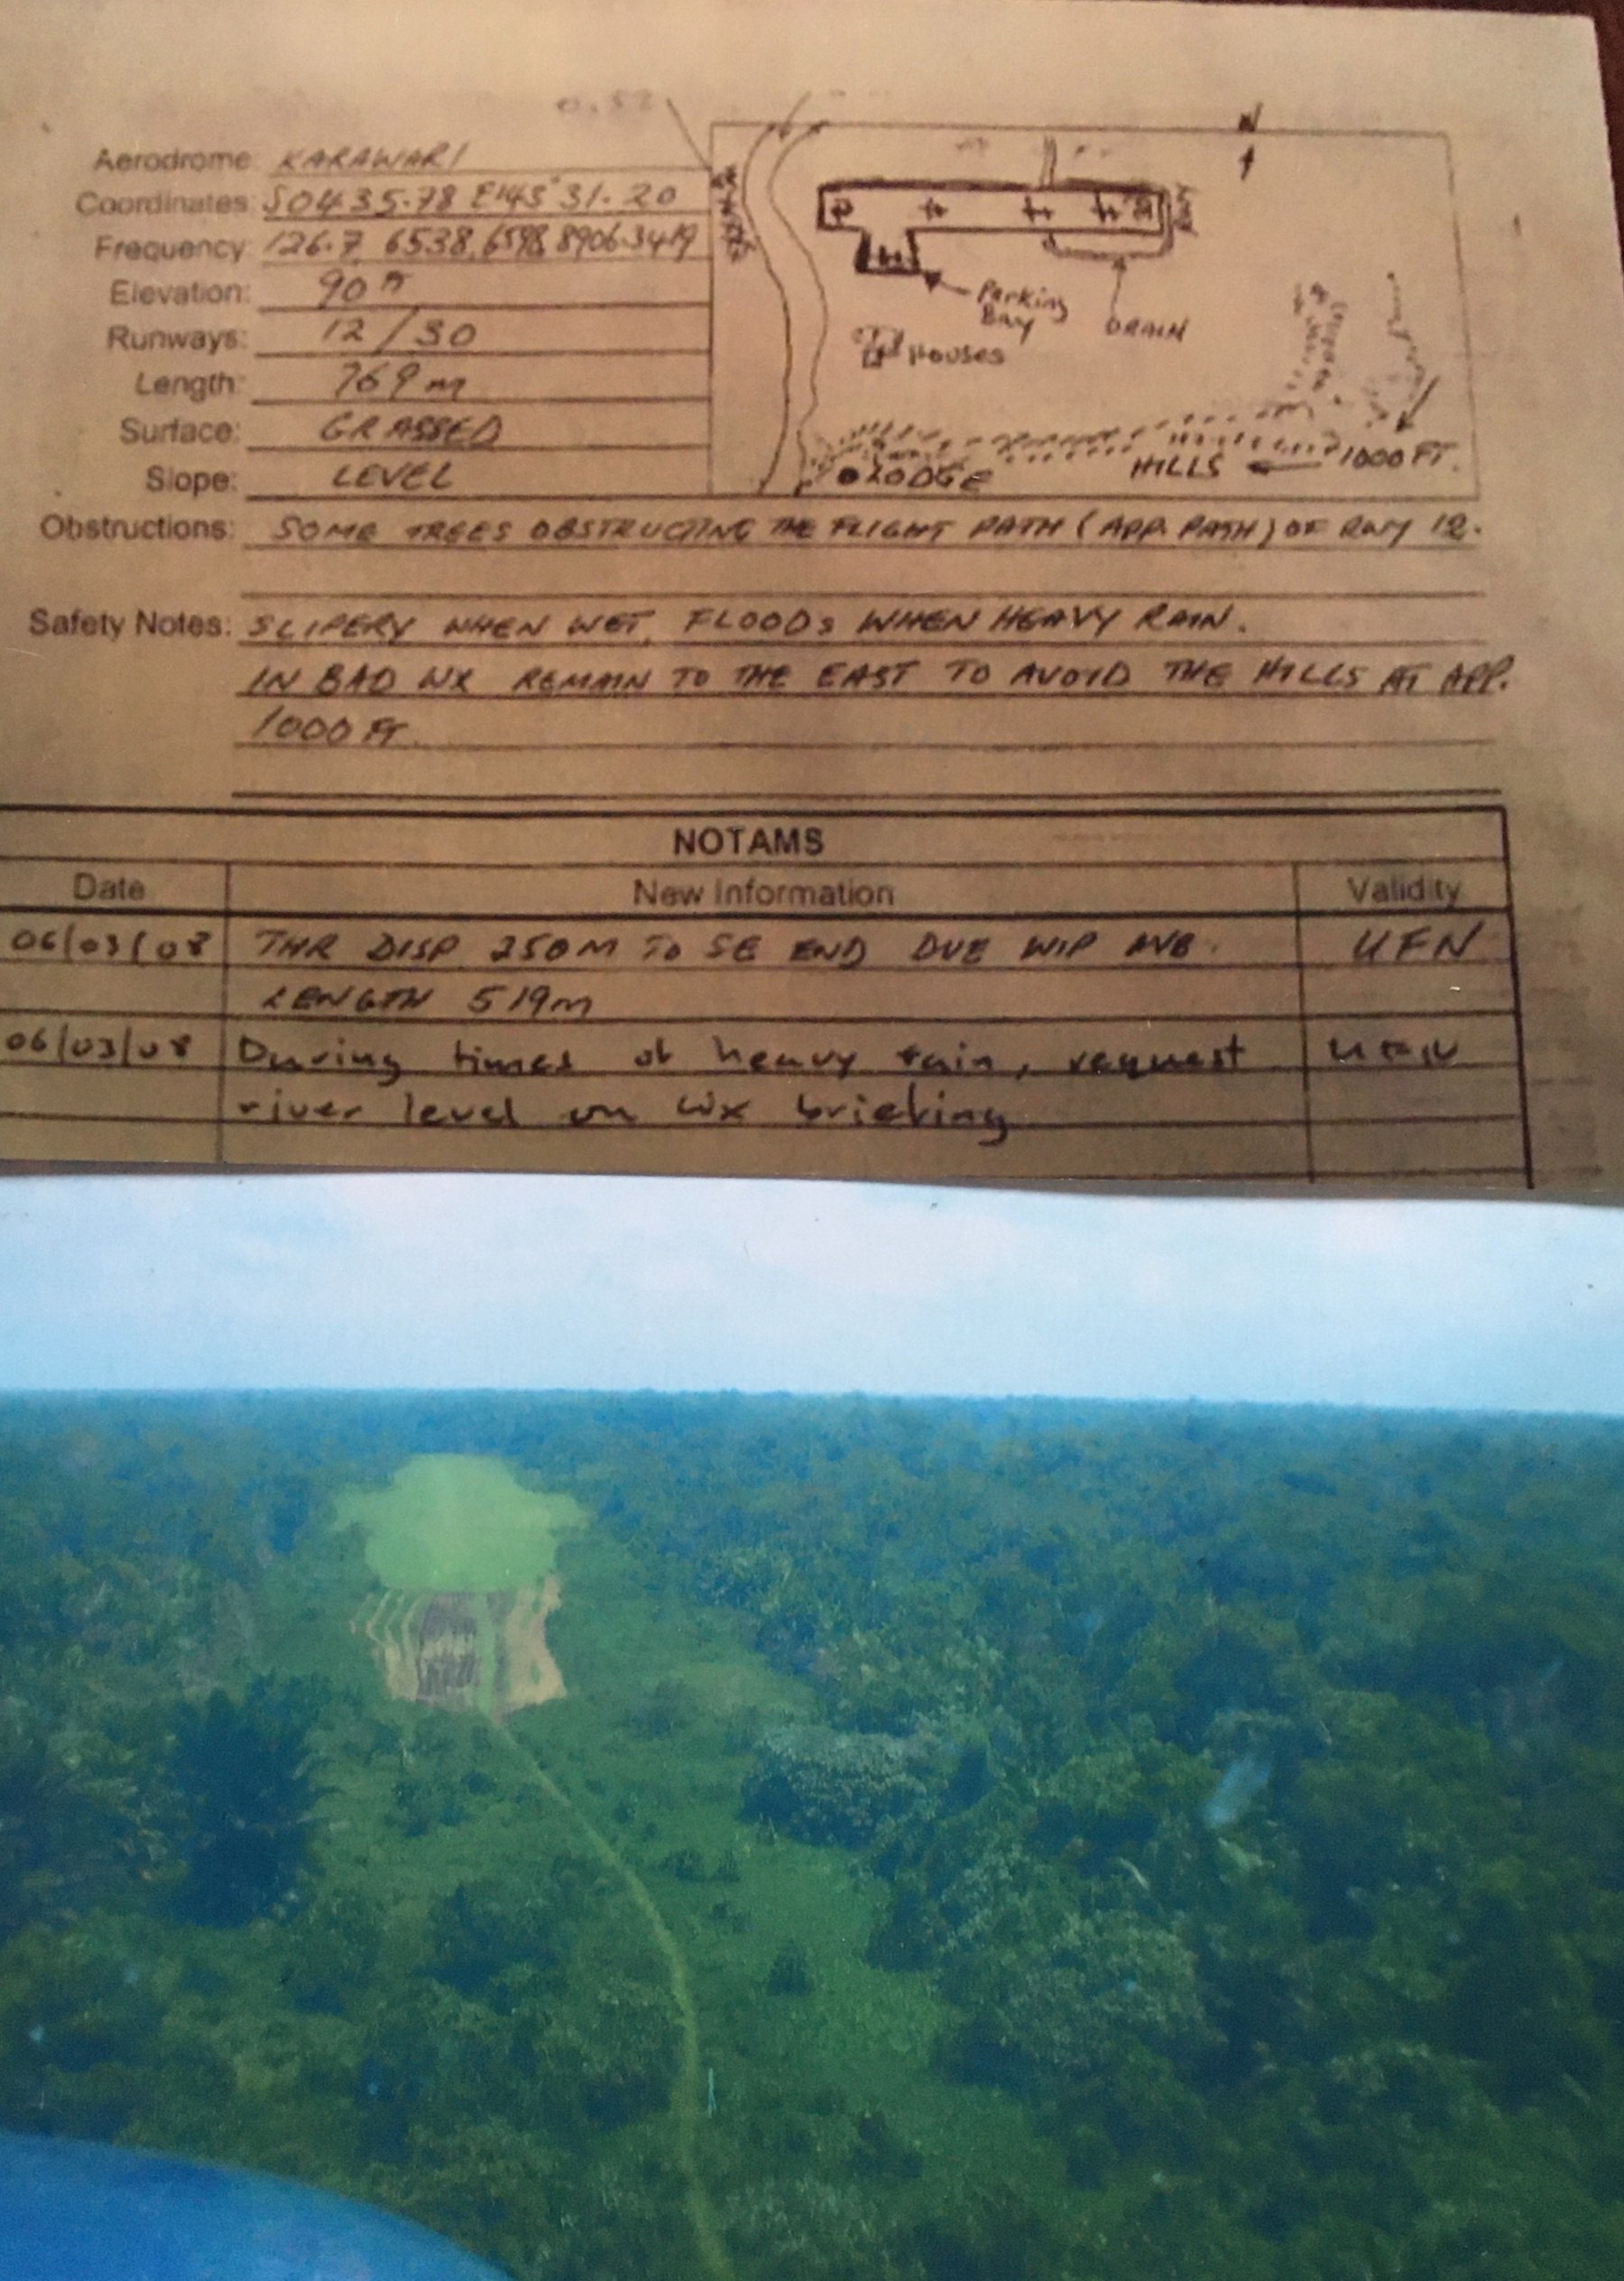 Aerodrome: KARAWARI
Coordinates: S0435.78 E143°31.20
Frequency: 126.7, 6538, 6598, 8906, 3419
Elevation: 90 FT
Runways: 12/30
Length: 769m
Surface: GRASSED
Slope: LEVEL
N
Parking
Bay
DRAIN
Houses
LODGE
HILLS
1000 FT.
Obstructions: SOME TREES OBSTRUCTING THE FLIGHT PATH (APP. PATH) OF RWY 12.
Safety Notes: SLIPERY WHEN WET, FLOODS WHEN HEAVY RAIN.
IN BAD WX REMAIN TO THE EAST TO AVOID THE HILLS AT APP.
1000 FT.
NOTAMS
Date New Information Validity
06/03/08 THR DISP 250M TO SE END DUE WIP AVB. UFN
LENGTH 519m
06/03/08 During times of heavy rain, request UFN
river level on wx briefing